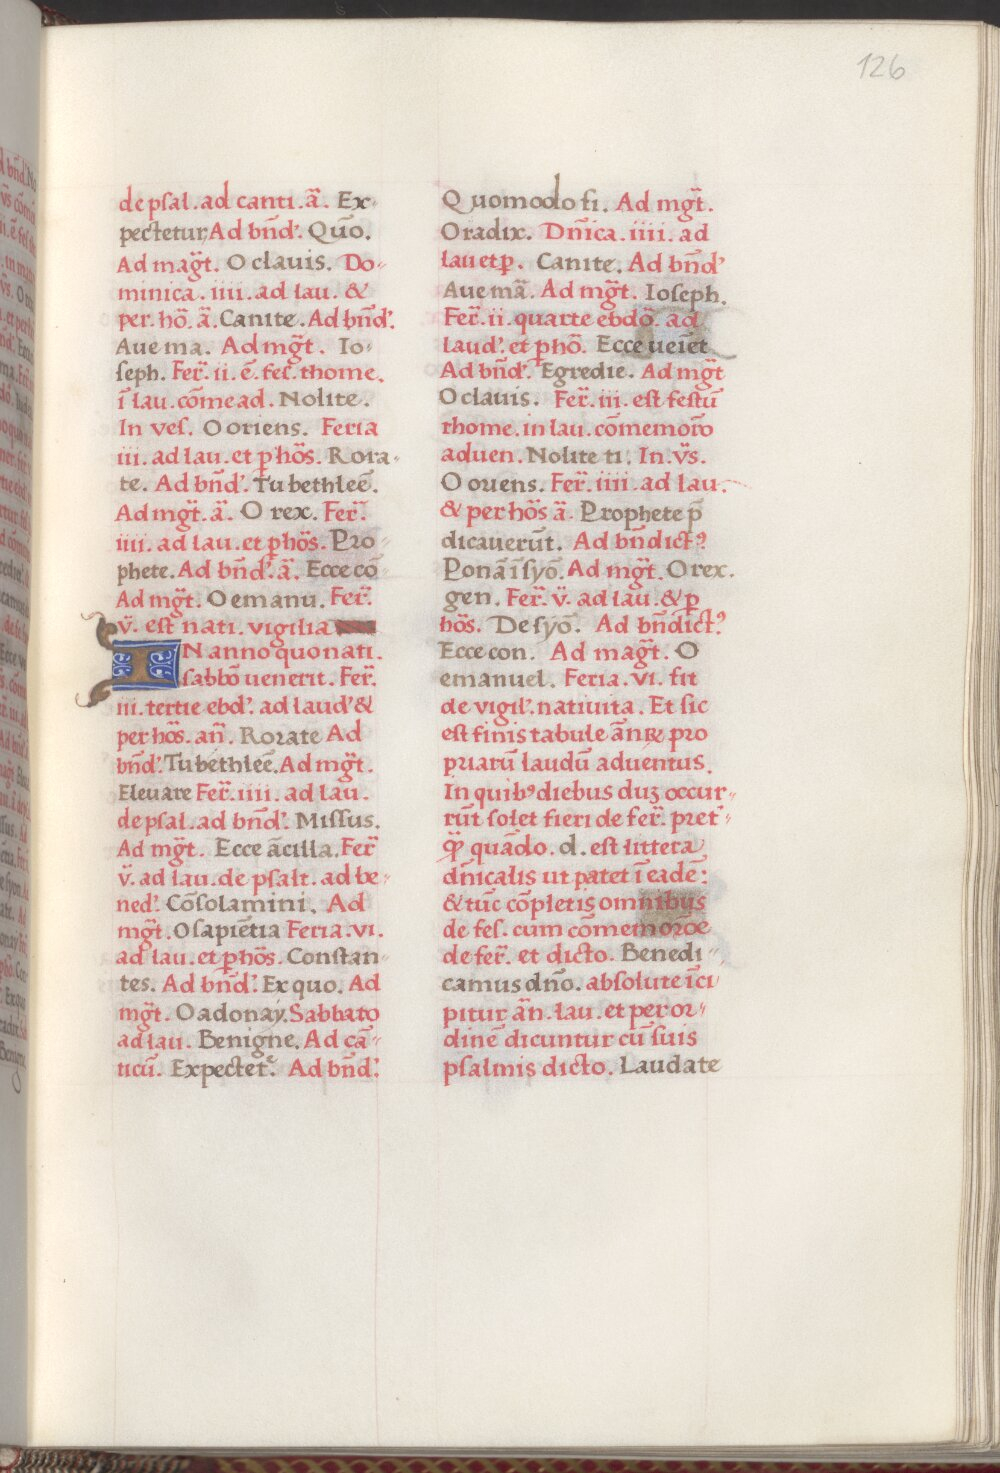 126
de psal. ad canti. ā. Ex-
pectetur, Ad bn̄d'. Quō.
Ad mag̃t. O clauis. Do-
minica. iiii. ad lau. &
per. hō. ā. Canite. Ad bn̄d'.
Aue ma. Ad mg̃t. Io-
seph. Fer̃. ii. ē. fes̃. thome.
ī lau. cōme ad. Nolite.
In ves. O oriens. Feria
iii. ad lau. et p hōs. Rora-
te. Ad bn̄d'. Tu bethleē.
Ad mg̃t. ā. O rex. Fer̃.
iiii. ad lau. et p hōs. Pro-
phete. Ad bn̄d'. ā. Ecce cō-
Ad mg̃t. O emanu. Fer̃.
v̄. est nati. vigilia
IN anno quo nati.
sabbō uenerit. Fer̃.
iii. tertie ebd'. ad laud' &
per hōs. an̄. Rorate Ad
bn̄d'. Tu bethleē. Ad mg̃t.
Eleuare Fer̃. iiii. ad lau.
de psal. ad bn̄d'. Missus.
Ad mg̃t. Ecce ācilla. Fer̃
v̄. ad lau. de psalt. ad be-
ned'. Cōsolamini. Ad
mg̃t. O sapiētia Feria. vi.
ad lau. et p hōs. Constan-
tes. Ad bn̄d'. Ex quo. Ad
mg̃t. O adonay. Sabbato
ad lau. Benigne. Ad cā-
ticū. Expectet᷑. Ad bn̄d'.
Quomodo fi. Ad mg̃t.
O radix. Dn̄ica. iiii. ad
lau et p. Canite. Ad bn̄d'
Aue mā. Ad mg̃t. Ioseph.
Fer̃. ii. quarte ebdō. ad
laud'. et p hō. Ecce ueiēt
Ad bn̄d'. Egredie. Ad mg̃t
O clauis. Fer̃. iii. est festū
thome. in lau. cōmemorō
aduen. Nolite ti. In. v̄s.
O oriens. Fer̃. iiii. ad lau.
& per hōs ā. Prophete p̄
dicauerūt. Ad bn̄dictꝰ
Ponā ī syō. Ad mg̃t. O rex.
gen. Fer̃. v̄. ad lau. & p
hōs. De syō. Ad bn̄dict?
Ecce con. Ad mag̃t. O
emanuel. Feria. vi. fit
de vigil'. natiuita. Et sic
est finis tabule ānaꝝ pro
priarū laudū aduentus.
In quibꝰ diebus duꝫ occur-
rūt solet fieri de fer̃. pret-
qꝫ quādo. d. est littera
dn̄icalis ut patet ī eadē:
& tūc cōpletis omnibus
de fes. cum cōmemoroē
de fer̃. et dicto. Benedi-
camus dn̄o. absolute īci
pitur ān. lau. et per or-
dinē dicuntur cū suis
psalmis dicto. Laudate